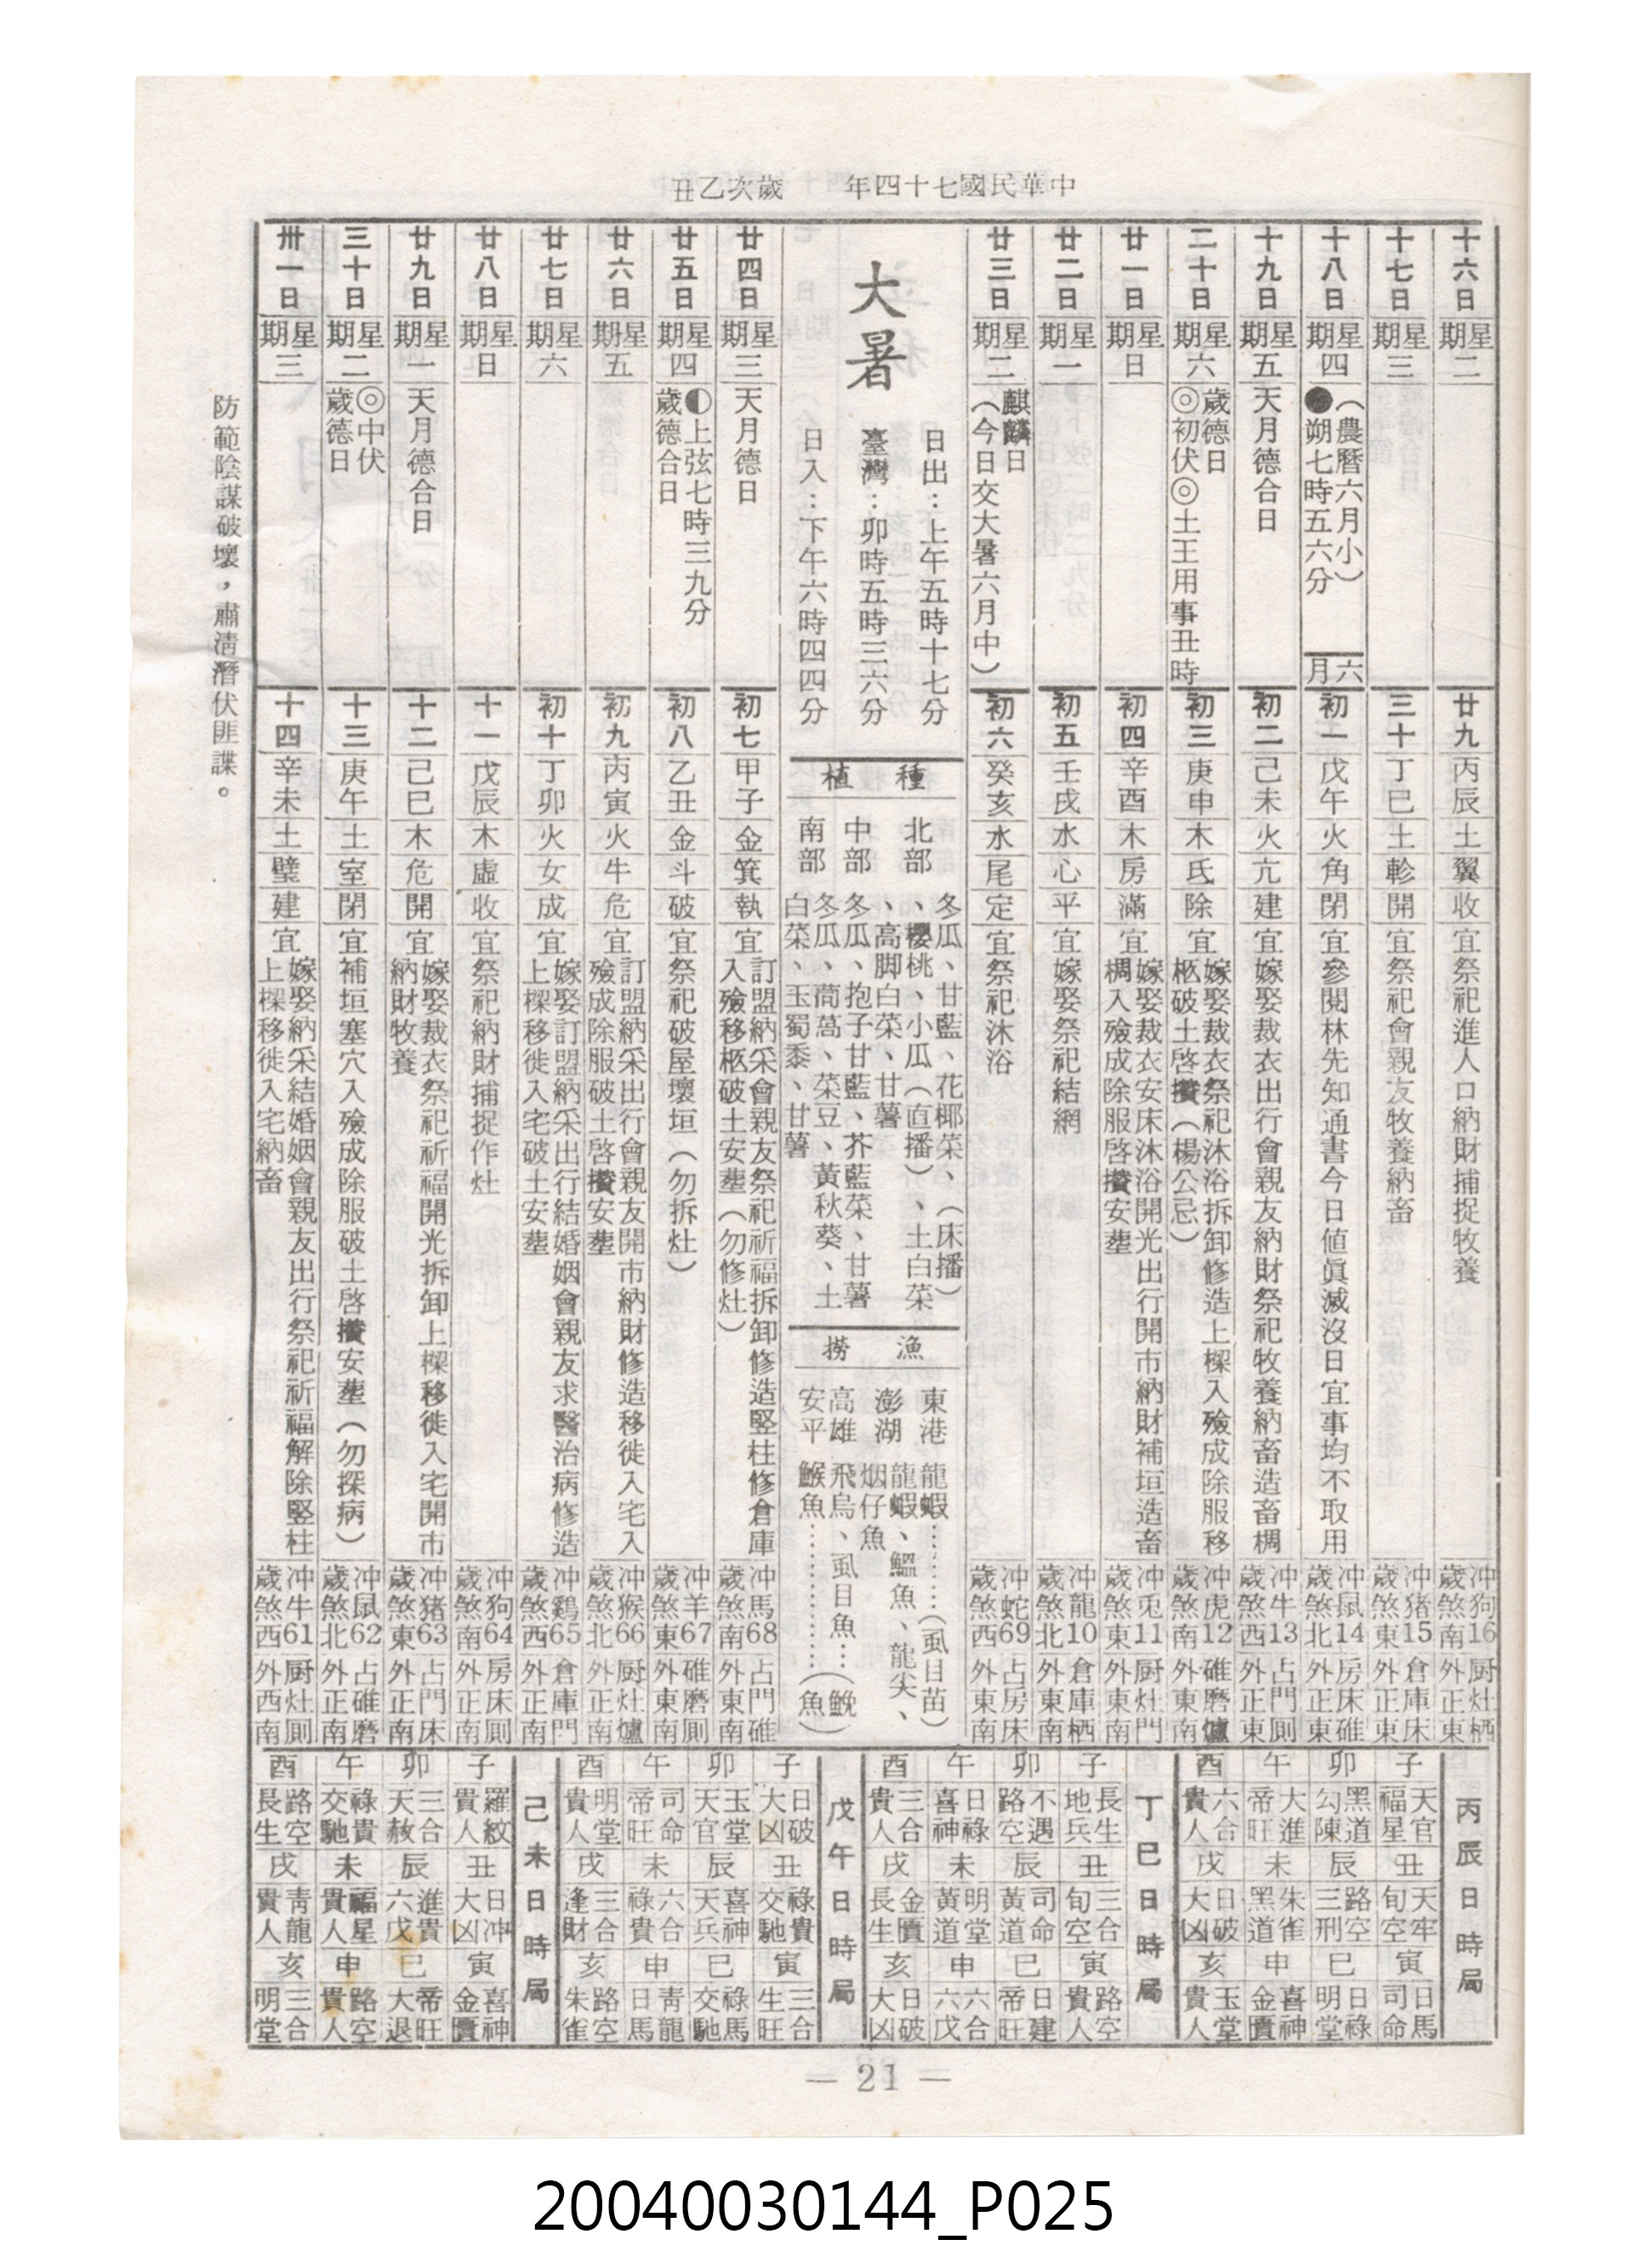 中華民國七十四年　歲次乙丑
十六日 星期二 廿九 丙辰 土 翼 收 宜 祭祀進人口納財捕捉牧養 冲狗16歲煞南 厨灶栖外正東
十七日 星期三 三十 丁巳 土 軫 開 宜 祭祀會親友牧養納畜 冲猪15歲煞東 倉庫床外正東
十八日 星期四 （農曆六月小）●朔七時五六分 六月 初一 戊午 火 角 閉 宜 參閱林先知通書今日値眞滅沒日宜事均不取用 冲鼠14歲煞北 房床碓外正東
十九日 星期五 天月德合日 初二 己未 火 亢 建 宜 嫁娶裁衣出行會親友納財祭祀牧養納畜造畜椆 冲牛13歲煞西 占門厠外正東
二十日 星期六 歲德日◎初伏◎土王用事丑時 初三 庚申 木 氐 除 宜 嫁娶裁衣祭祀沐浴拆卸修造上樑入殮成除服移柩破土啓攢（楊公忌） 冲虎12歲煞南 碓磨爐外東南
廿一日 星期日 初四 辛酉 木 房 滿 宜 嫁娶裁衣安床沐浴開光出行開市納財補垣造畜椆入殮成除服啓攢安塟 冲兎11歲煞東 厨灶門外東南
廿二日 星期一 初五 壬戌 水 心 平 宜 嫁娶祭祀結網 冲龍10歲煞北 倉庫栖外東南
廿三日 星期二 麒麟日（今日交大暑六月中） 初六 癸亥 水 尾 定 宜 祭祀沐浴 冲蛇69歲煞西 占房床外東南
大暑
日出：上午五時十七分
臺灣：卯時五時三六分
日入：下午六時四四分
種植
北部 冬瓜、甘藍、花椰菜、（床播）、櫻桃、小瓜（直播）、土白菜、高脚白菜、甘薯
中部 冬瓜、抱子甘藍、芥藍菜、甘薯
南部 冬瓜、茼萵、菜豆、黃秋葵、土白菜、玉蜀黍、甘薯
漁撈
東港 龍蝦………（虱目苗）
澎湖 龍蝦、鰮魚、龍尖、烟仔魚
高雄 飛烏、虱目魚…（鮸魚）
安平 鯸魚…………
廿四日 星期三 天月德日 初七 甲子 金 箕 執 宜 訂盟納采會親友祭祀祈福拆卸修造竪柱修倉庫入殮移柩破土安塟（勿修灶） 冲馬68歲煞南 占門碓外東南
廿五日 星期四 ◐上弦七時三九分歲德合日 初八 乙丑 金 斗 破 宜 祭祀破屋壞垣（勿拆灶） 冲羊67歲煞東 碓磨厠外東南
廿六日 星期五 初九 丙寅 火 牛 危 宜 訂盟納采出行會親友開市納財修造移徙入宅入殮成除服破土啓攢安塟 冲猴66歲煞北 厨灶爐外正南
廿七日 星期六 初十 丁卯 火 女 成 宜 嫁娶訂盟納采出行結婚姻會親友求醫治病修造上樑移徙入宅破土安塟 冲鷄65歲煞西 倉庫門外正南
廿八日 星期日 十一 戊辰 木 虛 收 宜 祭祀納財捕捉作灶 冲狗64歲煞南 房床厠外正南
廿九日 星期一 天月德合日 十二 己巳 木 危 開 宜 嫁娶裁衣祭祀祈福開光拆卸上樑移徙入宅開市納財牧養 冲猪63歲煞東 占門床外正南
三十日 星期二 ◎中伏歲德日 十三 庚午 土 室 閉 宜 補垣塞穴入殮成除服破土啓攢安塟（勿探病） 冲鼠62歲煞北 占碓磨外正南
卅一日 星期三 十四 辛未 土 璧 建 宜 嫁娶納采結婚姻會親友出行祭祀祈福解除竪柱上樑移徙入宅納畜 冲牛61歲煞西 厨灶厠外西南
丙辰日時局
子 天官福星 丑 天牢旬空 寅 日馬司命
卯 黑道勾陳 辰 路空三刑 巳 日祿明堂
午 大進帝旺 未 朱雀黑道 申 喜神金匱
酉 六合貴人 戌 日破大凶 亥 玉堂貴人
丁巳日時局
子 長生地兵 丑 三合旬空 寅 路空貴人
卯 不遇路空 辰 司命黃道 巳 日建帝旺
午 日祿喜神 未 明堂黃道 申 六合六戊
酉 三合貴人 戌 金匱長生 亥 日破大凶
戊午日時局
子 日破大凶 丑 祿貴交馳 寅 三合生旺
卯 玉堂天官 辰 喜神天兵 巳 祿馬交馳
午 司命帝旺 未 六合祿貴 申 靑龍日馬
酉 明堂貴人 戌 三合逢財 亥 路空朱雀
己未日時局
子 羅紋貴人 丑 日冲大凶 寅 喜神金匱
卯 三合天赦 辰 進貴六戊 巳 帝旺大退
午 祿貴交馳 未 福星貴人 申 路空貴人
酉 路空長生 戌 靑龍貴人 亥 三合明堂
防範陰謀破壞，肅淸潛伏匪諜。
— 21 —
20040030144_P025